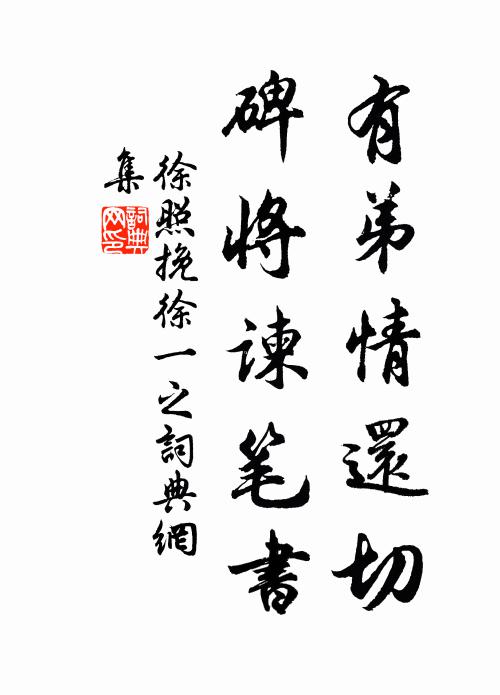 有弟情還切
碑將諫笔書
徐照挽徐一之詞典網
集
詞典
网印